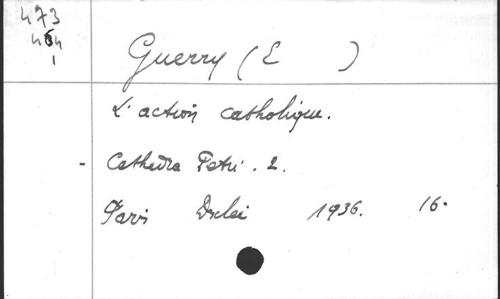 473
464
1
Guerry (E )
L'action catholique.
- Cathedra Petri. 2.
Paris Dclei 1936. 16°